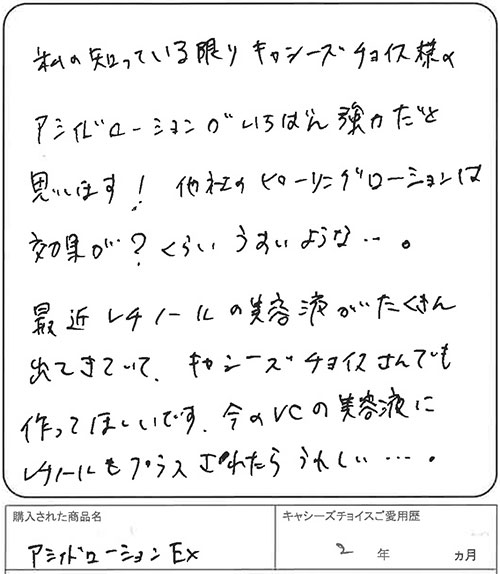 私の知っている限り キャシーズチョイス様の
アシィドローションがいちばん強力だと
思います! 他社のピーリングローションは
効果が?くらい うすいような…。
最近レチノールの美容液がたくさん
出てきていて、キャシーズチョイスさんでも
作ってほしいです、今のVCの美容液に
レチノールもプラスされたら うれしい…。
購入された商品名
キャシーズチョイスご愛用歴
アシィドローションEX
2 年 ヵ月